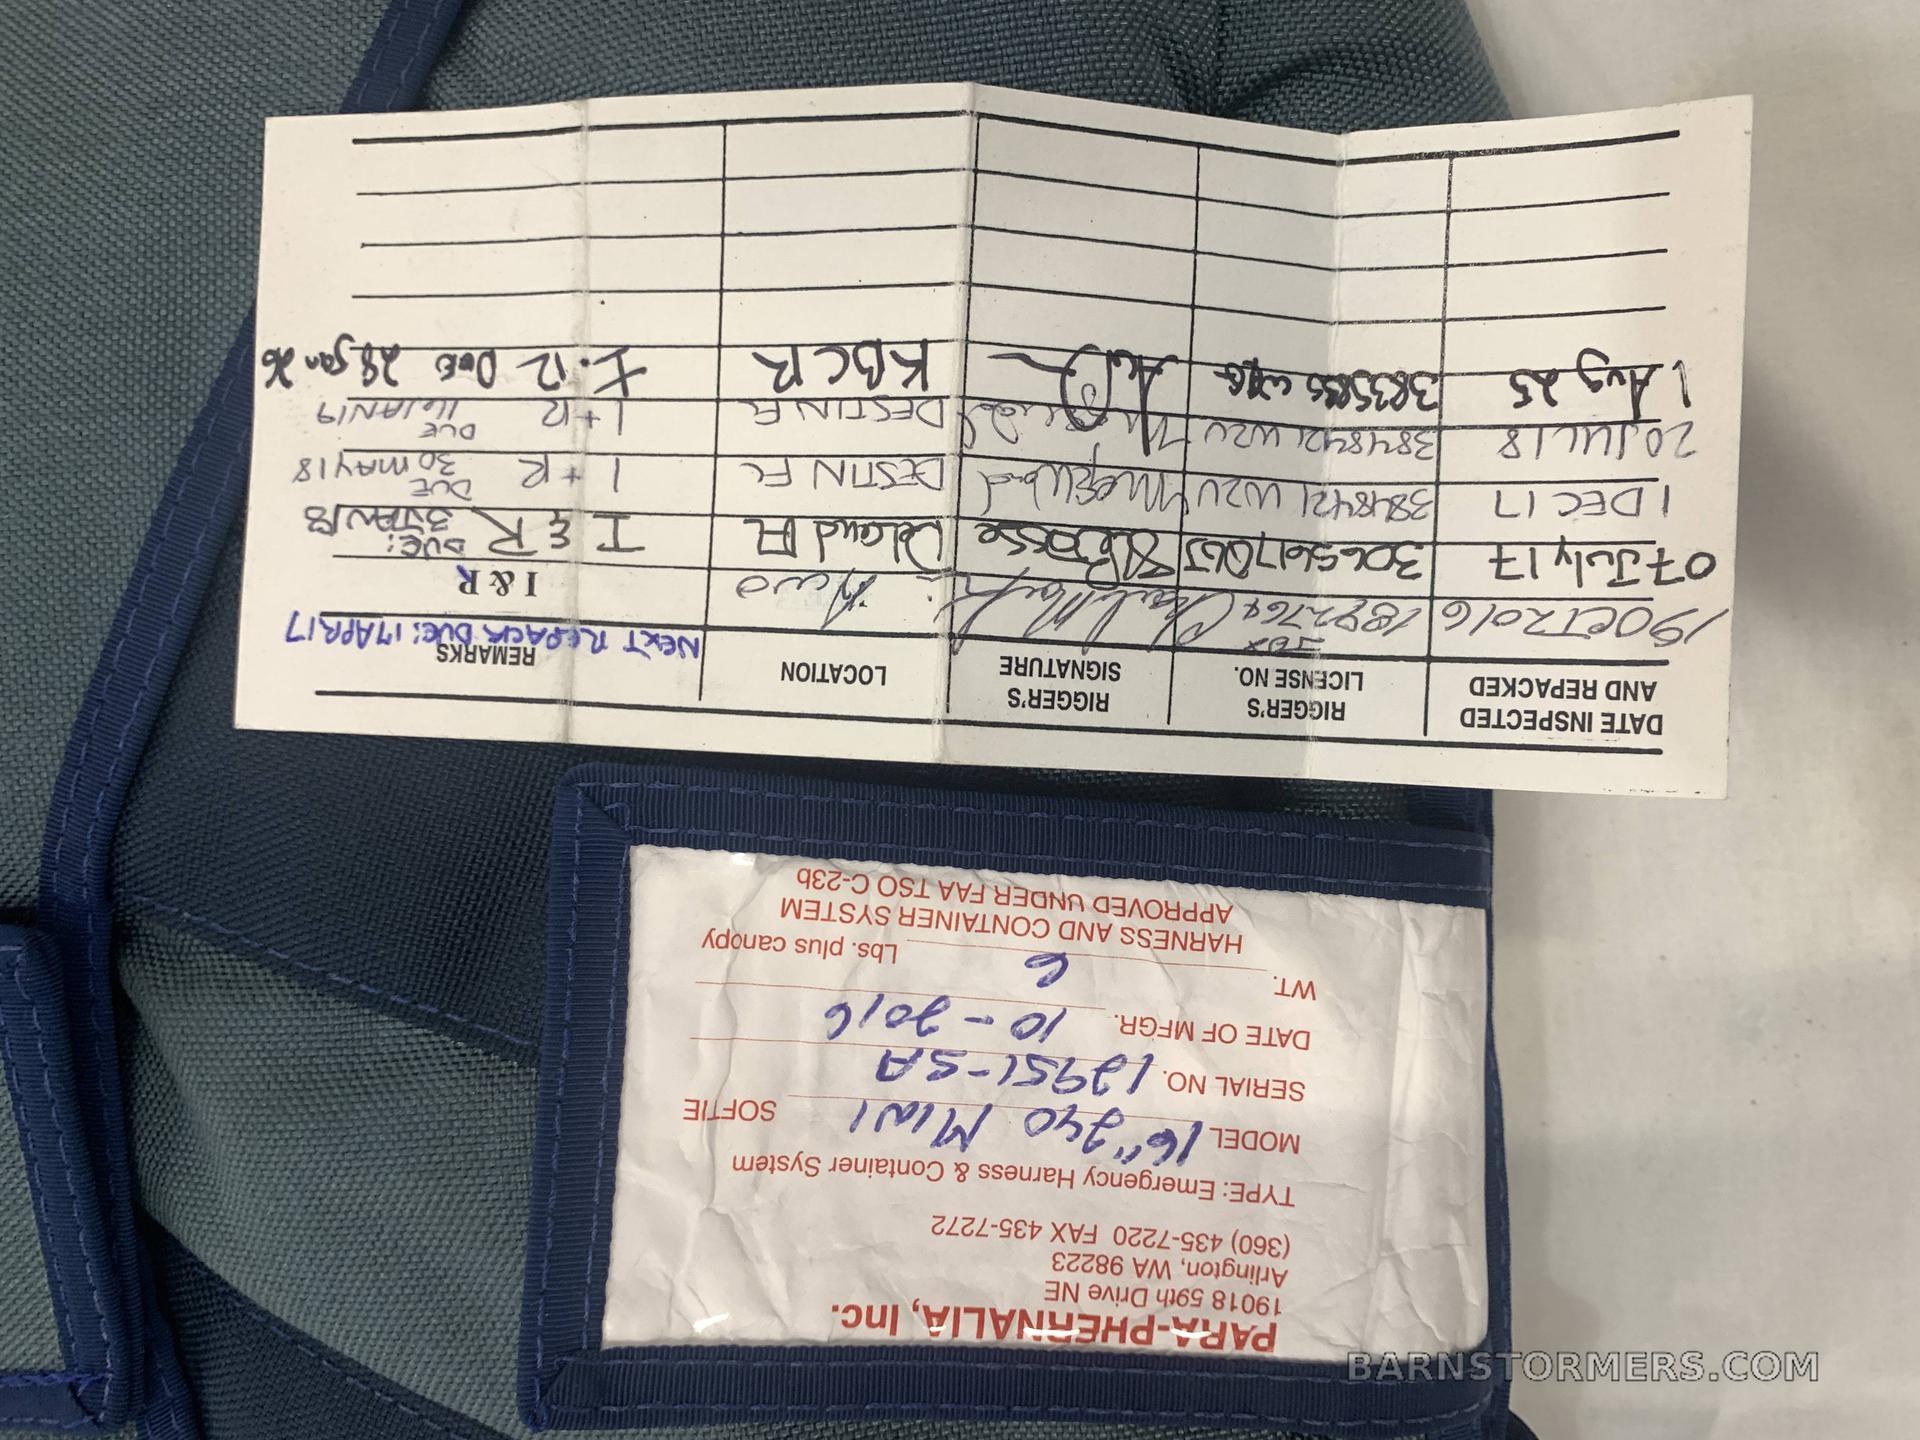 DATE INSPECTED AND REPACKED RIGGER'S LICENSE NO. RIGGER'S SIGNATURE LOCATION REMARKS
NEXT REPACK DUE: 17APR17
19OCT2016 I & R
07 July 17 Deland FL I & R DUE: 3JAN18
1 DEC 17 3848421 W2U DESTIN FL I + R DUE 30MAY18
20JUL18 3848421 W2U DESTIN FL I + R DUE 16JAN19
1 Aug 25 KBCR I.R Due 28 Jan 26
PARA-PHERNALIA, Inc.
19018 59th Drive NE
Arlington, WA 98223
(360) 435-7220 FAX 435-7272
TYPE: Emergency Harness & Container System
MODEL 16" 240 MINI SOFTIE
SERIAL NO. 12951-SA
DATE OF MFGR. 10-2016
WT. 6 Lbs. plus canopy
HARNESS AND CONTAINER SYSTEM
APPROVED UNDER FAA TSO C-23b
BARNSTORMERS.COM